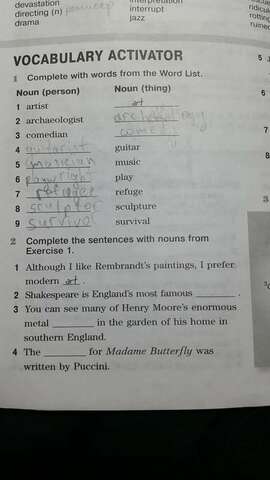 devastation
directing (n)
drama
interpretation
interrupt
jazz
ridicu
rotting
ruined
VOCABULARY ACTIVATOR
1 Complete with words from the Word List.
Noun (person) Noun (thing)
1 artist art
2 archaeologist
3 comedian comedi
4 guitarist guitar
5 musician music
6 play
7 refuge
8 sculptor sculpture
9 survival survival
2 Complete the sentences with nouns from
Exercise 1.
1 Although I like Rembrandt's paintings, I prefer
modern art.
2 Shakespeare is England's most famous ________.
3 You can see many of Henry Moore's enormous
metal ________ in the garden of his home in
southern England.
4 The ________ for Madame Butterfly was
written by Puccini.
5
6
6
7
8
3